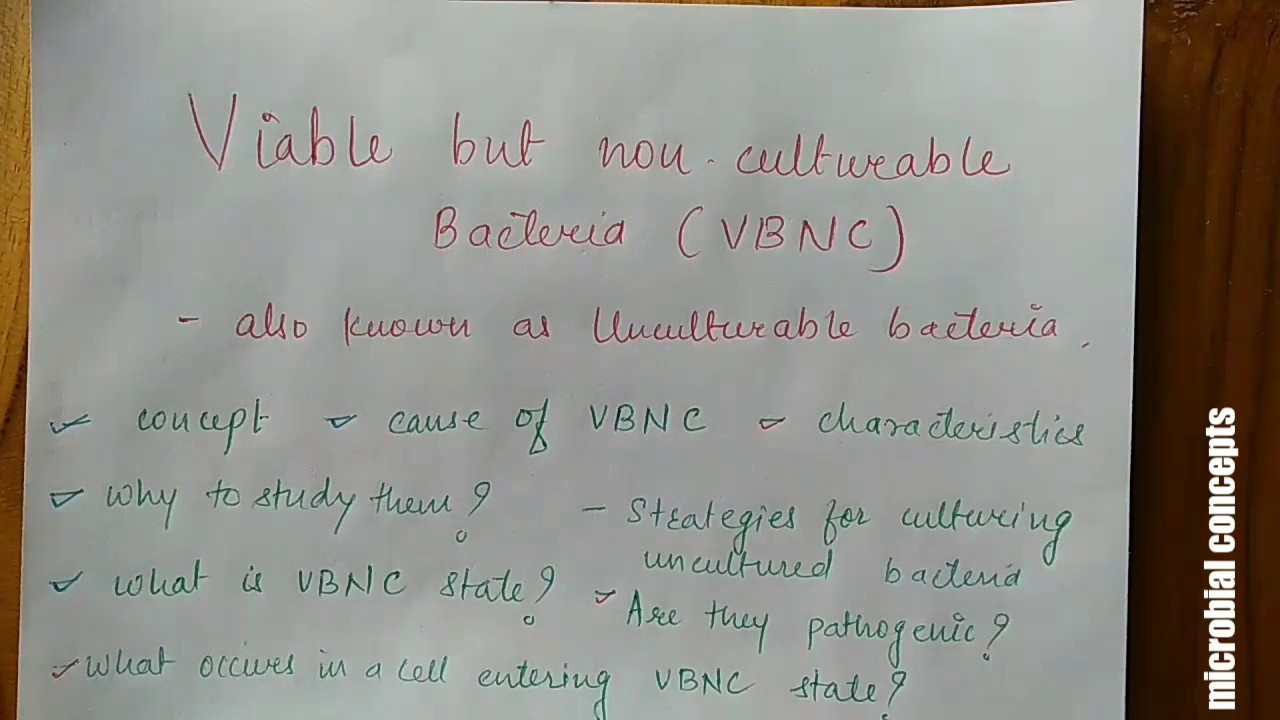 Viable but non-cultureable
Bacteria (VBNC)
- also known as Unculturable bacteria.
✓ concept ✓ cause of VBNC ✓ characteristics
✓ why to study them?
- Strategies for culturing
uncultured bacteria
✓ what is VBNC state?
✓ Are they pathogenic?
✓ what occures in a cell entering VBNC state?
microbial concepts